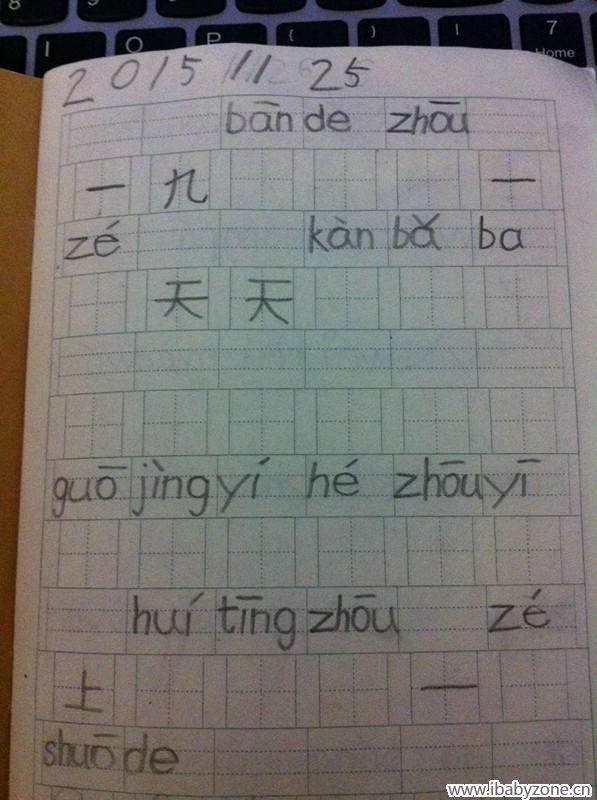 2015 11 25
bān de zhōu
一 九 一
zé kàn bǎ ba
天 天
guō jìng yí hé zhōu yī
huí tīng zhōu zé
上 一
shuō de
www.ibabyzone.cn